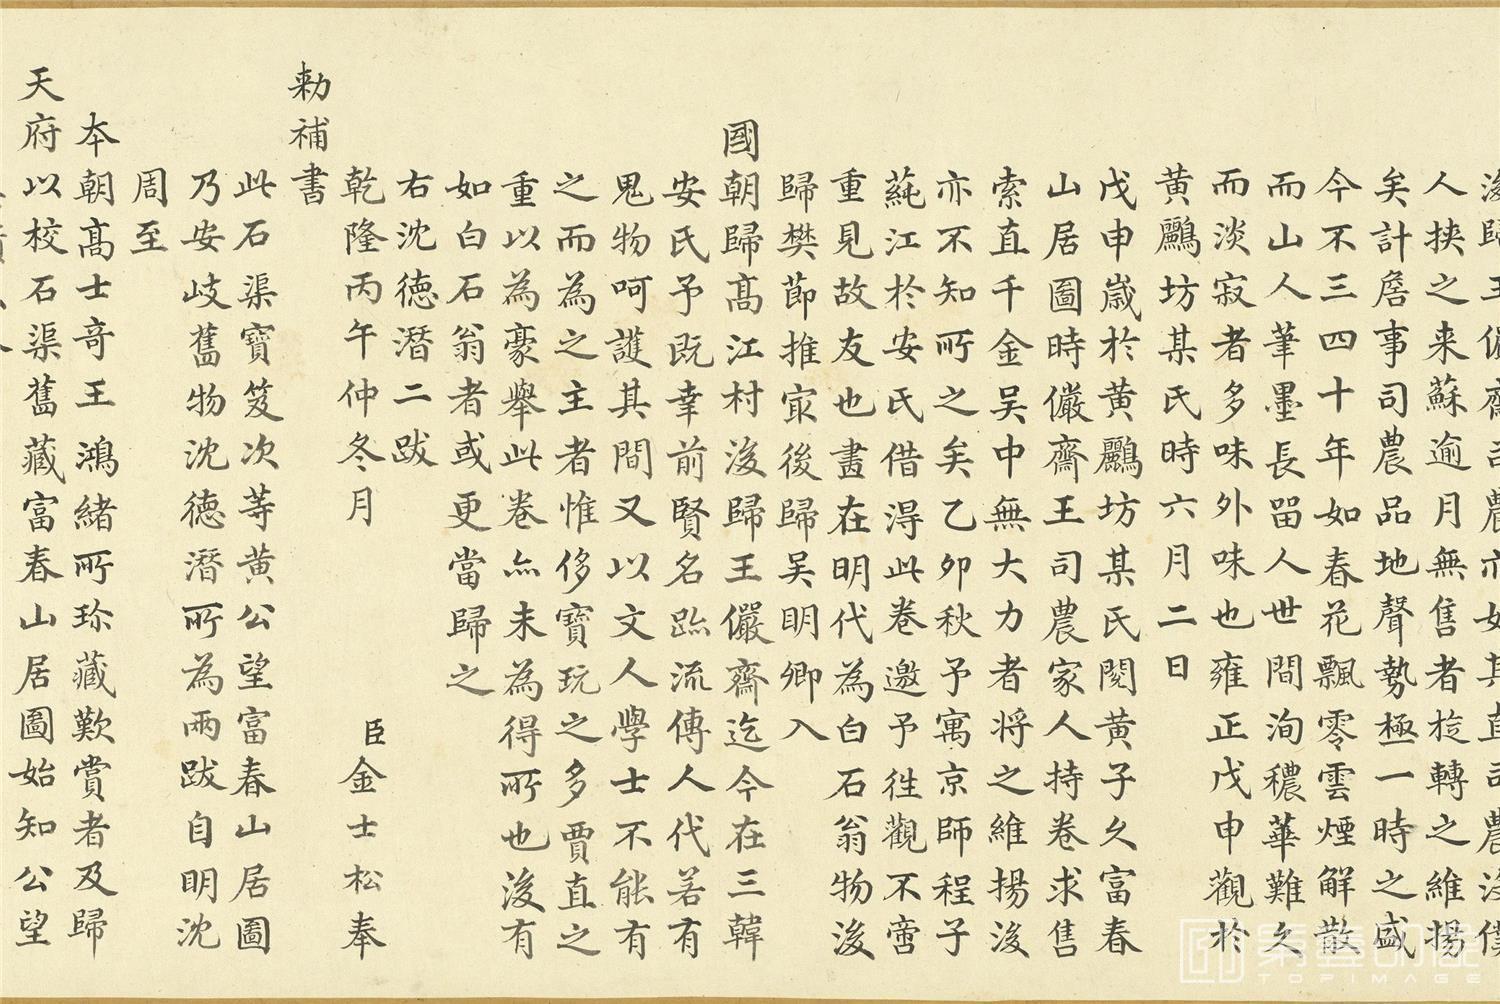 後歸王儼齋司農亦如其直司農沒僕
人挾之来蘇逾月無售者旋轉之維揚
矣計詹事司農品地聲勢極一時之盛
今不三四十年如春花飄零雲煙解散
而山人筆墨長留人世間洵穠華難久
而淡寂者多味外味也雍正戊申觀於
黃鸝坊某氏時六月二日
戊申歲於黃鸝坊某氏閱黃子久富春
山居圖時儼齋王司農家人持卷求售
索直千金吳中無大力者将之維揚後
亦不知所之矣乙卯秋予寓京師程子
蒓江於安氏借得此卷邀予往觀不啻
重見故友也畫在明代為白石翁物後
歸樊節推家後歸吳明卿入
國朝歸高江村後歸王儼齋迄今在三韓
安氏予既幸前賢名跡流傳人代若有
鬼物呵護其間又以文人學士不能有
之而為之主者惟侈寶玩之多賈直之
重以為豪舉此卷亦未為得所也後有
如白石翁者或更當歸之
右沈德潛二跋
乾隆丙午仲冬月 臣金士松奉
勅補書
此石渠寶笈次等黃公望富春山居圖
乃安岐舊物沈德潛所為兩跋自明沈
周至
本朝高士奇王鴻緒所珍藏歎賞者及歸
天府以校石渠舊藏富春山居圖始知公望